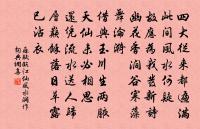 四大從来都遍滿
此間風水何疑
故應為我發新詩
幽花香澗谷寒藻
舞淪漪
借與玉川生兩腋
天仙未必相思
還憑流水送人歸
層巔餘落日草露
已沾衣
蘇軾臨江仙風水洞作